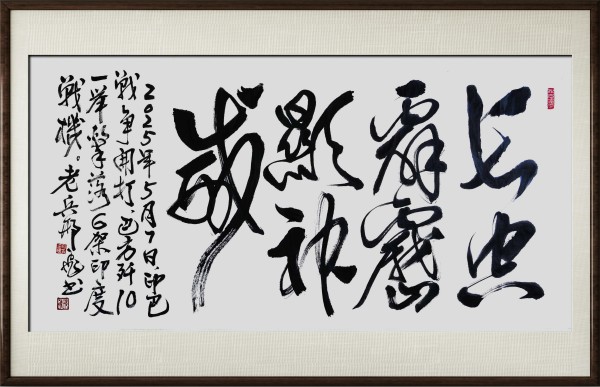 长空
霹靂
顯神
威
2025年5月7日印巴
戰争開打，巴方歼10
一举擊落6架印度
戰機。老兵邢书